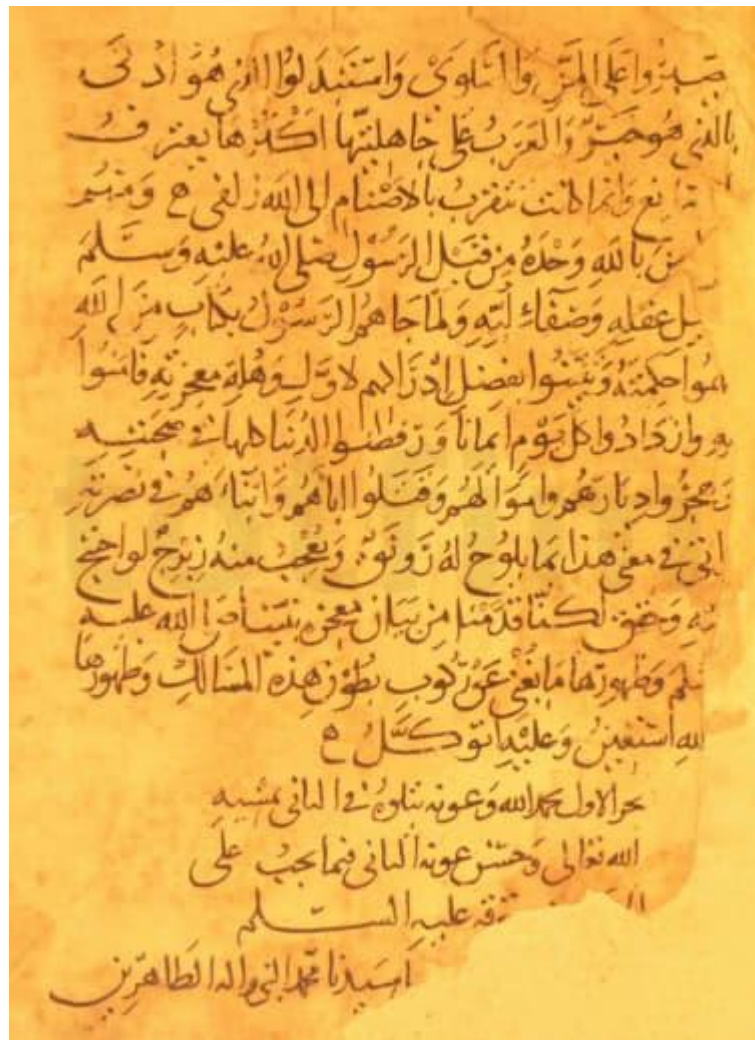 صبروا على المن والسلوى واستبدلوا الذي هو ادنى
بالذي هو خير والعرب على جاهليتها اكثرها يعترف
وانما كانت تتقرب بالاصنام الى الله زلفى ومنهم
بالله وحده من قبل الرسول صلى الله عليه وسلم
عقله وصفاء لبه ولما جاهم الرسول بكتاب من الله
حكمته وتبينوا بفضل ادراكهم لاول وهلة معجزته فامنوا
به وازدادوا كل يوم ايمانا ورفضوا الدنيا كلها في صحبته
وهجروا ديارهم واموالهم وقتلوا اباهم وابناءهم في نصرته
في معنى هذا بما يلوح له رونق ويعجب منه زبرج لو احتيج
وحقق لكنا قدمنا من بيان معجزة نبينا صلى الله عليه
وظهورها ما يغني عن ركوب بطون هذه المسالك وظهورها
استعين وعليه اتوكل
الاول بحمد الله وعونه يتلوه في الثاني بمشيه
الله تعالى وحسن عونه الثاني فيما يجب على
عليه السلم
سيدنا محمد النبي واله الطاهرين